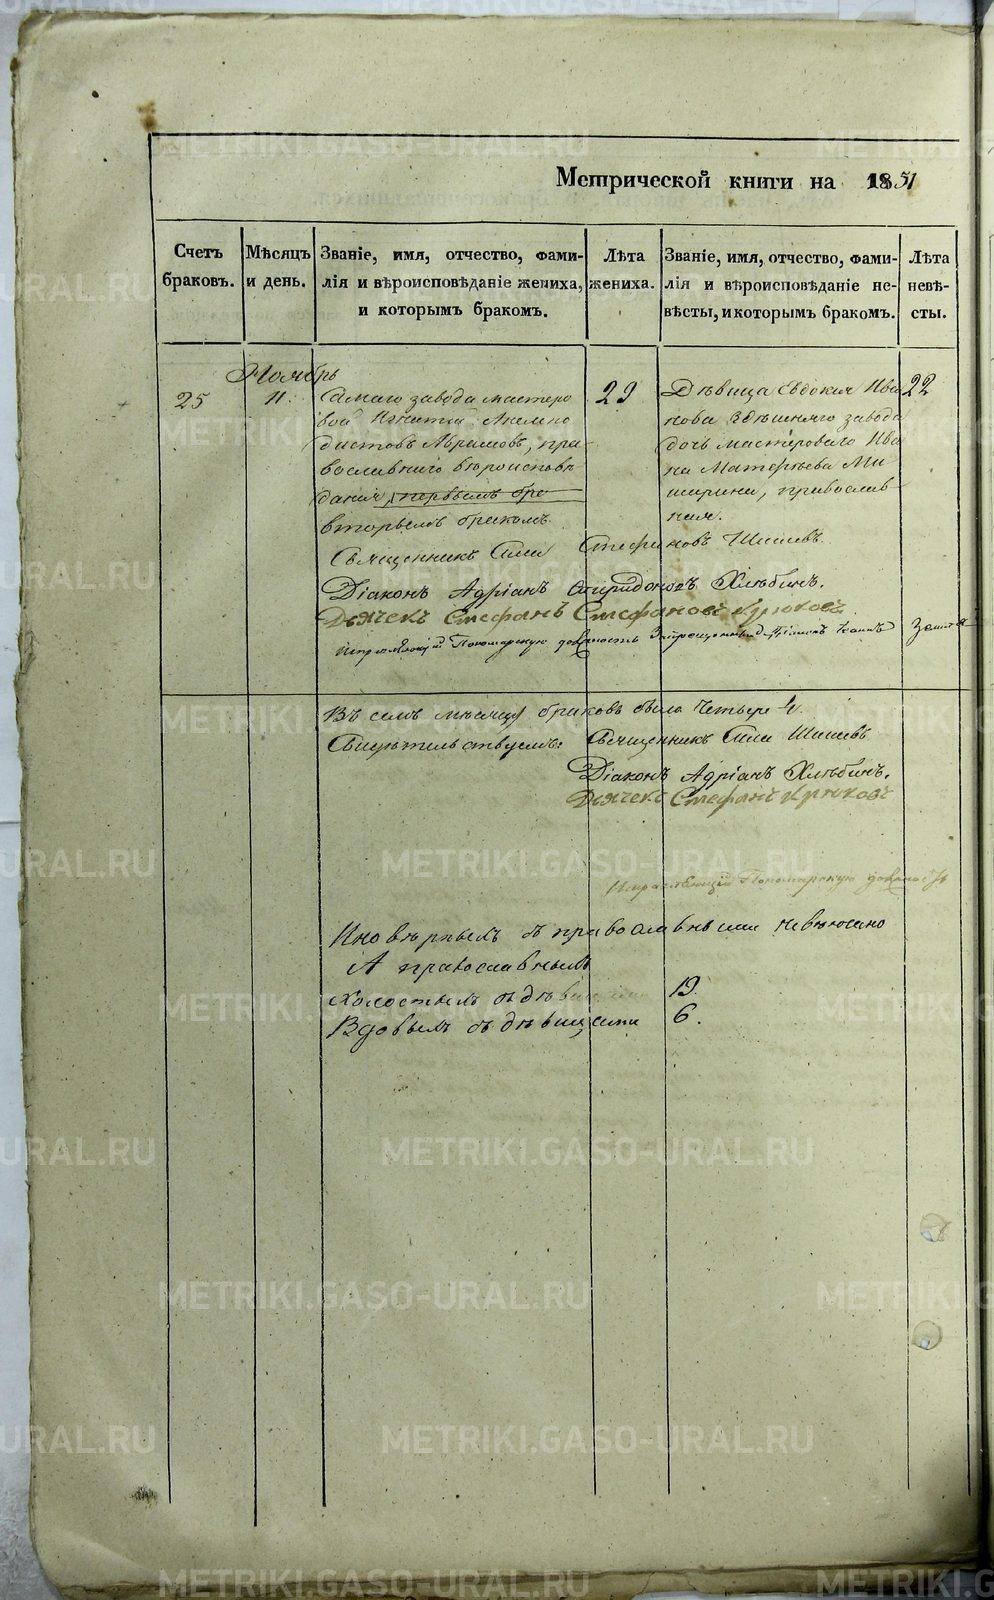 Метрической книги на 1851
Счетъ браковъ.
Мѣсяцъ и день.
Званіе, имя, отчество, фами-
лія и вѣроисповѣданіе жениха,
и которымъ бракомъ.
Лѣта жениха.
Званіе, имя, отчество, фами-
лія и вѣроисповѣданіе не-
вѣсты, и которымъ бракомъ.
Лѣта невѣ-
сты.
Ноябрь
25
11.
завода мастеро
вой Никита
Авраамовъ, пра
вославнаго вѣроисповѣ
данія, первымъ бра
вторымъ бракомъ.
29
Дѣвица Евдокія Ива
нова здѣшняго завода
дочь мастероваго Ива
на Матфѣева Ми
шарина, православ
ная.
22
Священникъ Стефановъ Шишевъ.
Діаконъ Адріанъ Спиридоновъ Хлѣбинъ.
Дьячекъ Стефанъ Стефановъ Крюковъ
Исправляющій Пономарскую должность Запрещенный Діаконъ Іоаннъ
Въ семъ мѣсяцѣ браковъ было четыре 4.
Свидѣтельствуемъ: Священникъ Шишевъ
Діаконъ Адріанъ Хлѣбинъ.
Дьячекъ Стефанъ Крюковъ
Исправляющій Пономарскую должность
Иновѣрныхъ съ православными не вѣнчано
А православныхъ
Холостыхъ съ дѣвицами 19.
Вдовыхъ съ дѣвицами 6.
METRIKI.GASO-URAL.RU